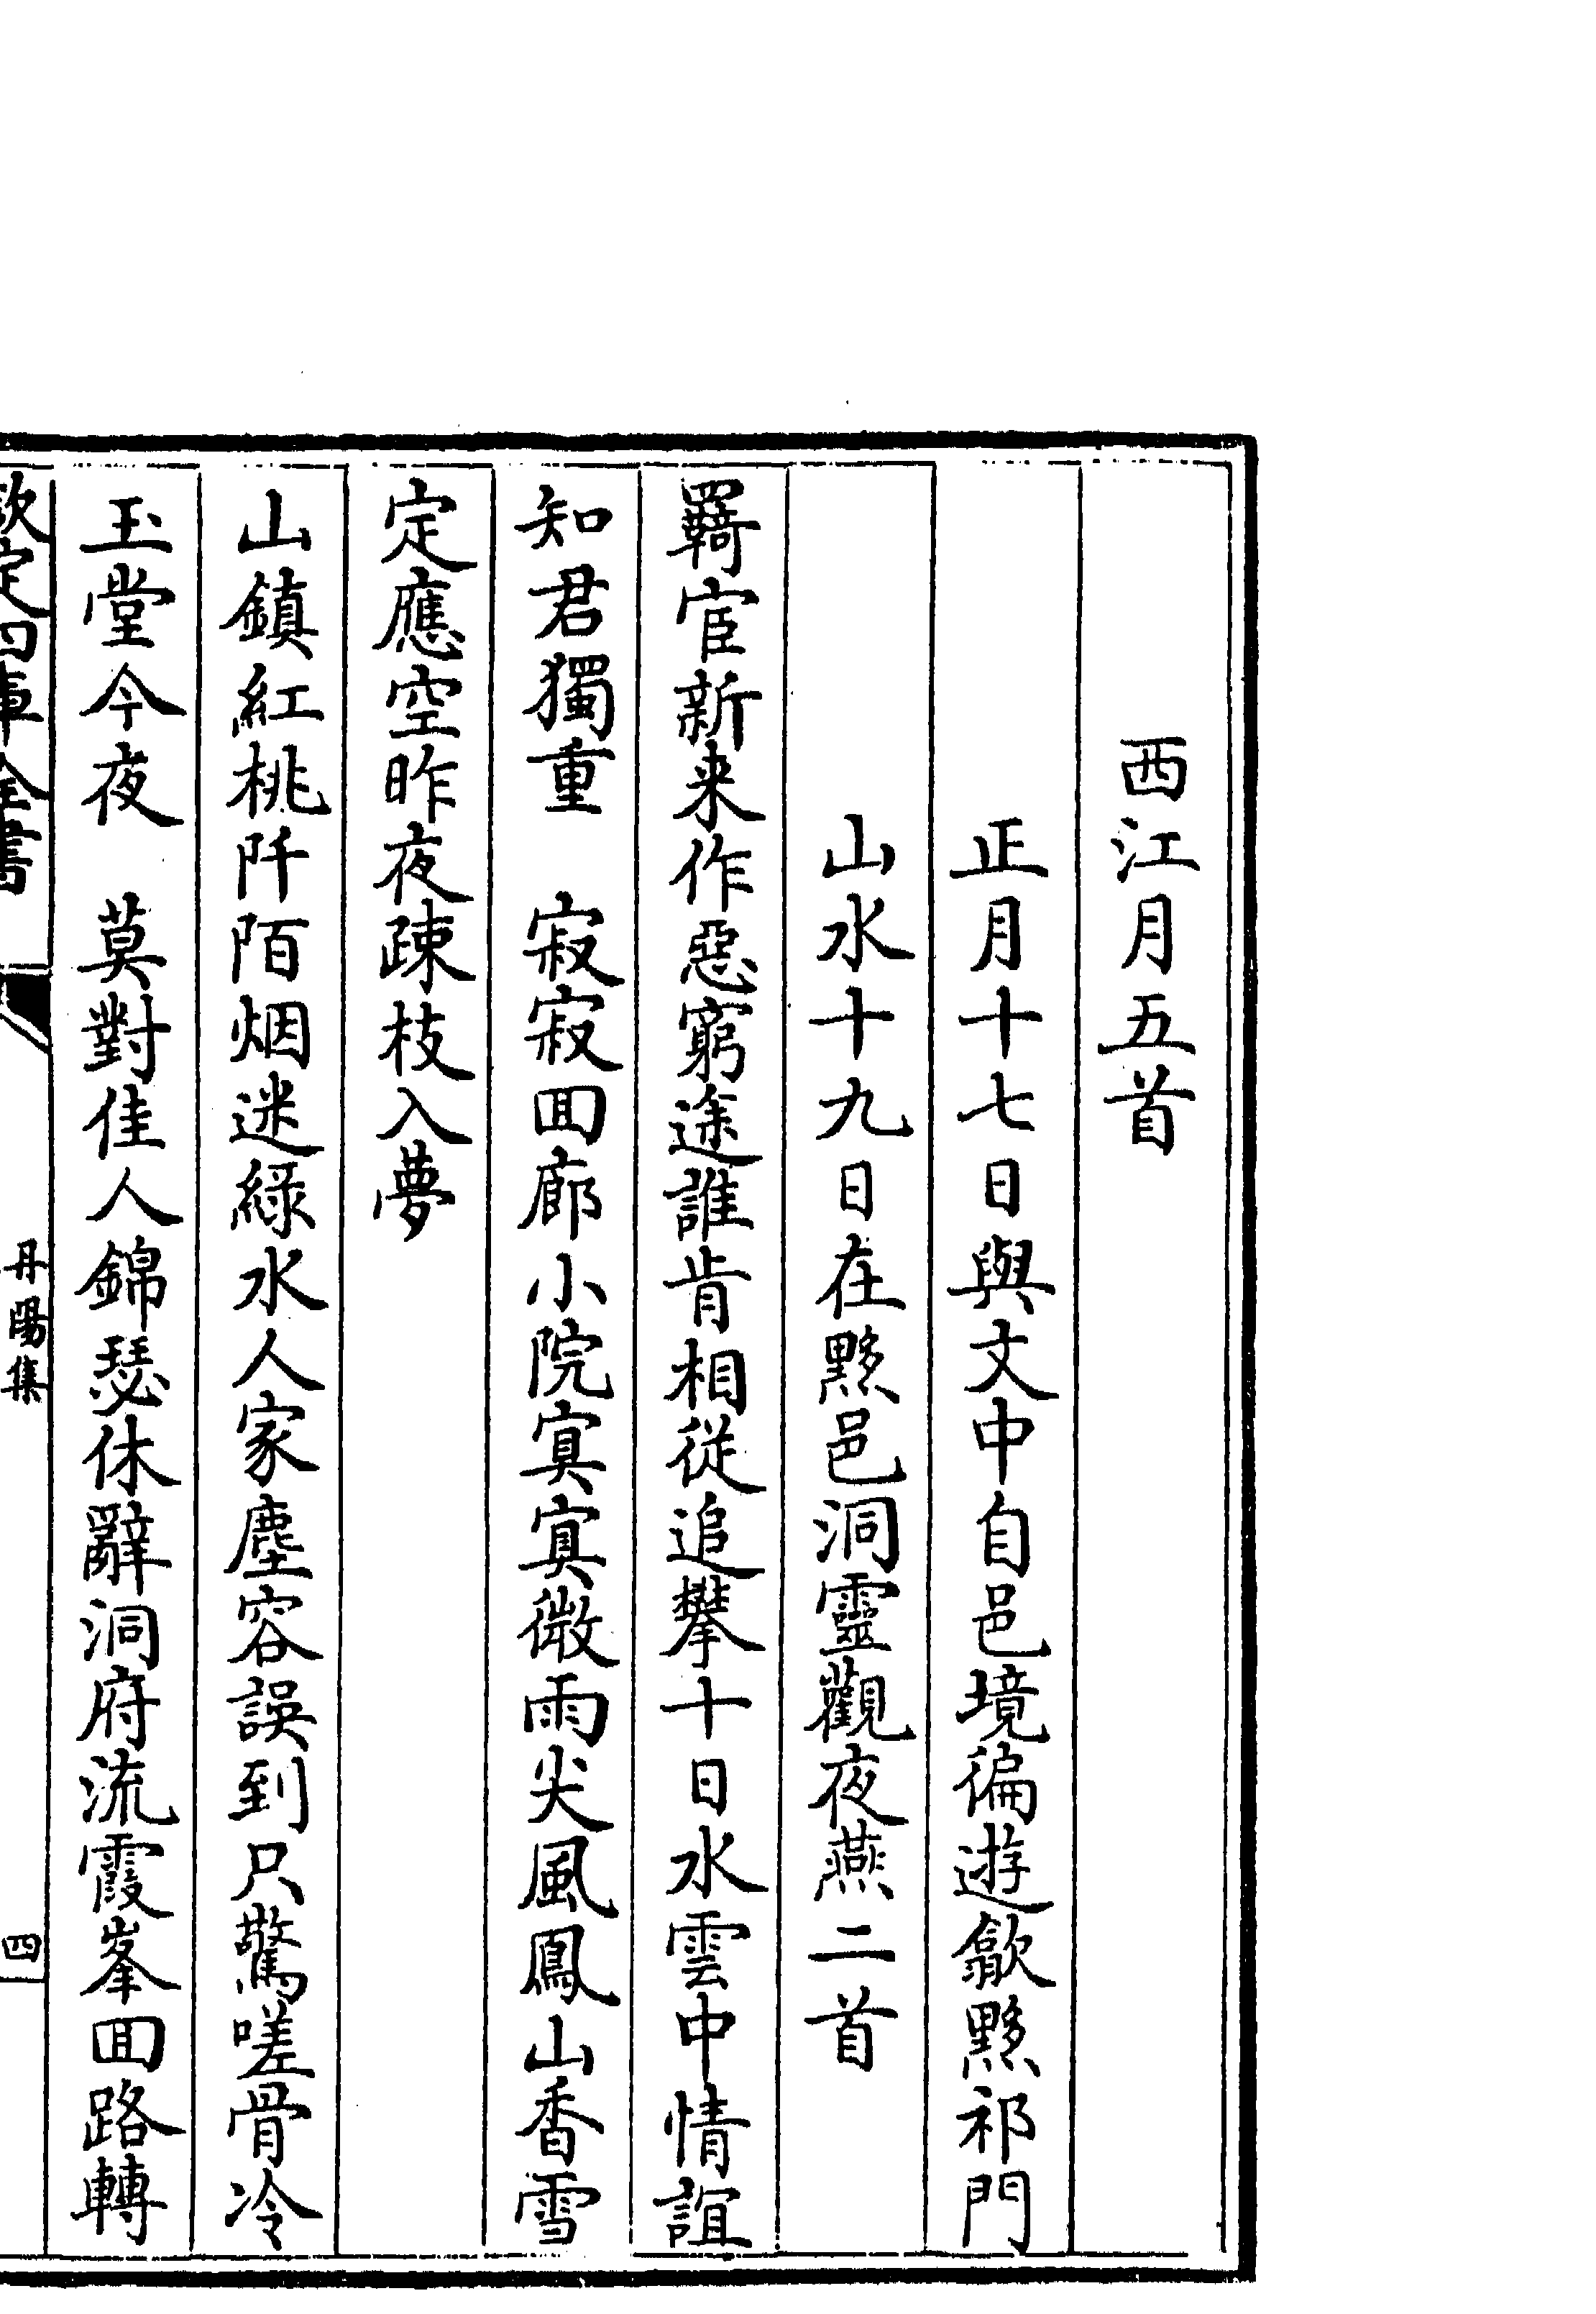 西江月五首
正月十七日與文中自邑境徧遊歙黟祁門
山水十九日在黟邑洞靈觀夜燕二首
羇宦新来作惡窮途誰肯相從追攀十日水雲中情誼
知君獨重　寂寂回廊小院寘寘微雨尖風鳳山香雪
定應空昨夜疎枝入夢
山鎮紅桃阡陌烟迷綠水人家塵容誤到只驚嗟骨冷
玉堂今夜　莫對佳人錦瑟休辭洞府流霞峯回路轉
欽定四庫全書
丹陽集
四